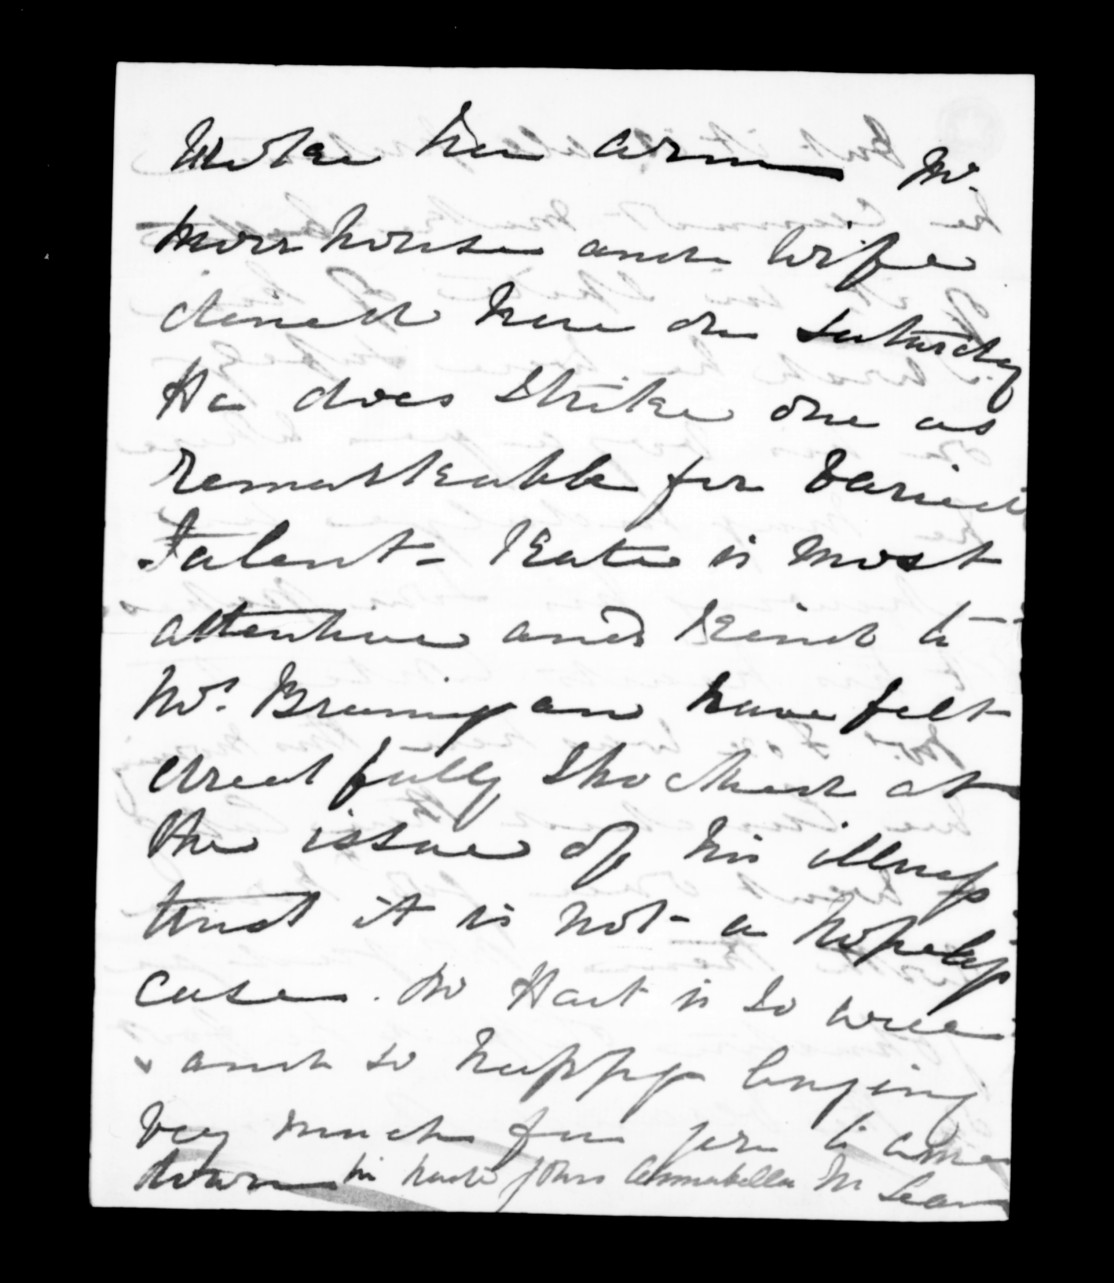 broken her arm — Mr.
Moorhouse and wife
dined here on Saturday
He does strike one as
remarkable for varied
Talent - Kate is most
attentive and kind to
Mr. Brannigan have felt
dreadfully shocked at
the issue of his illness
trust it is not a hopeless
case. Mr Hart is so well
& and so happy longing
very much for you to come
down in haste yours Annabella McLean